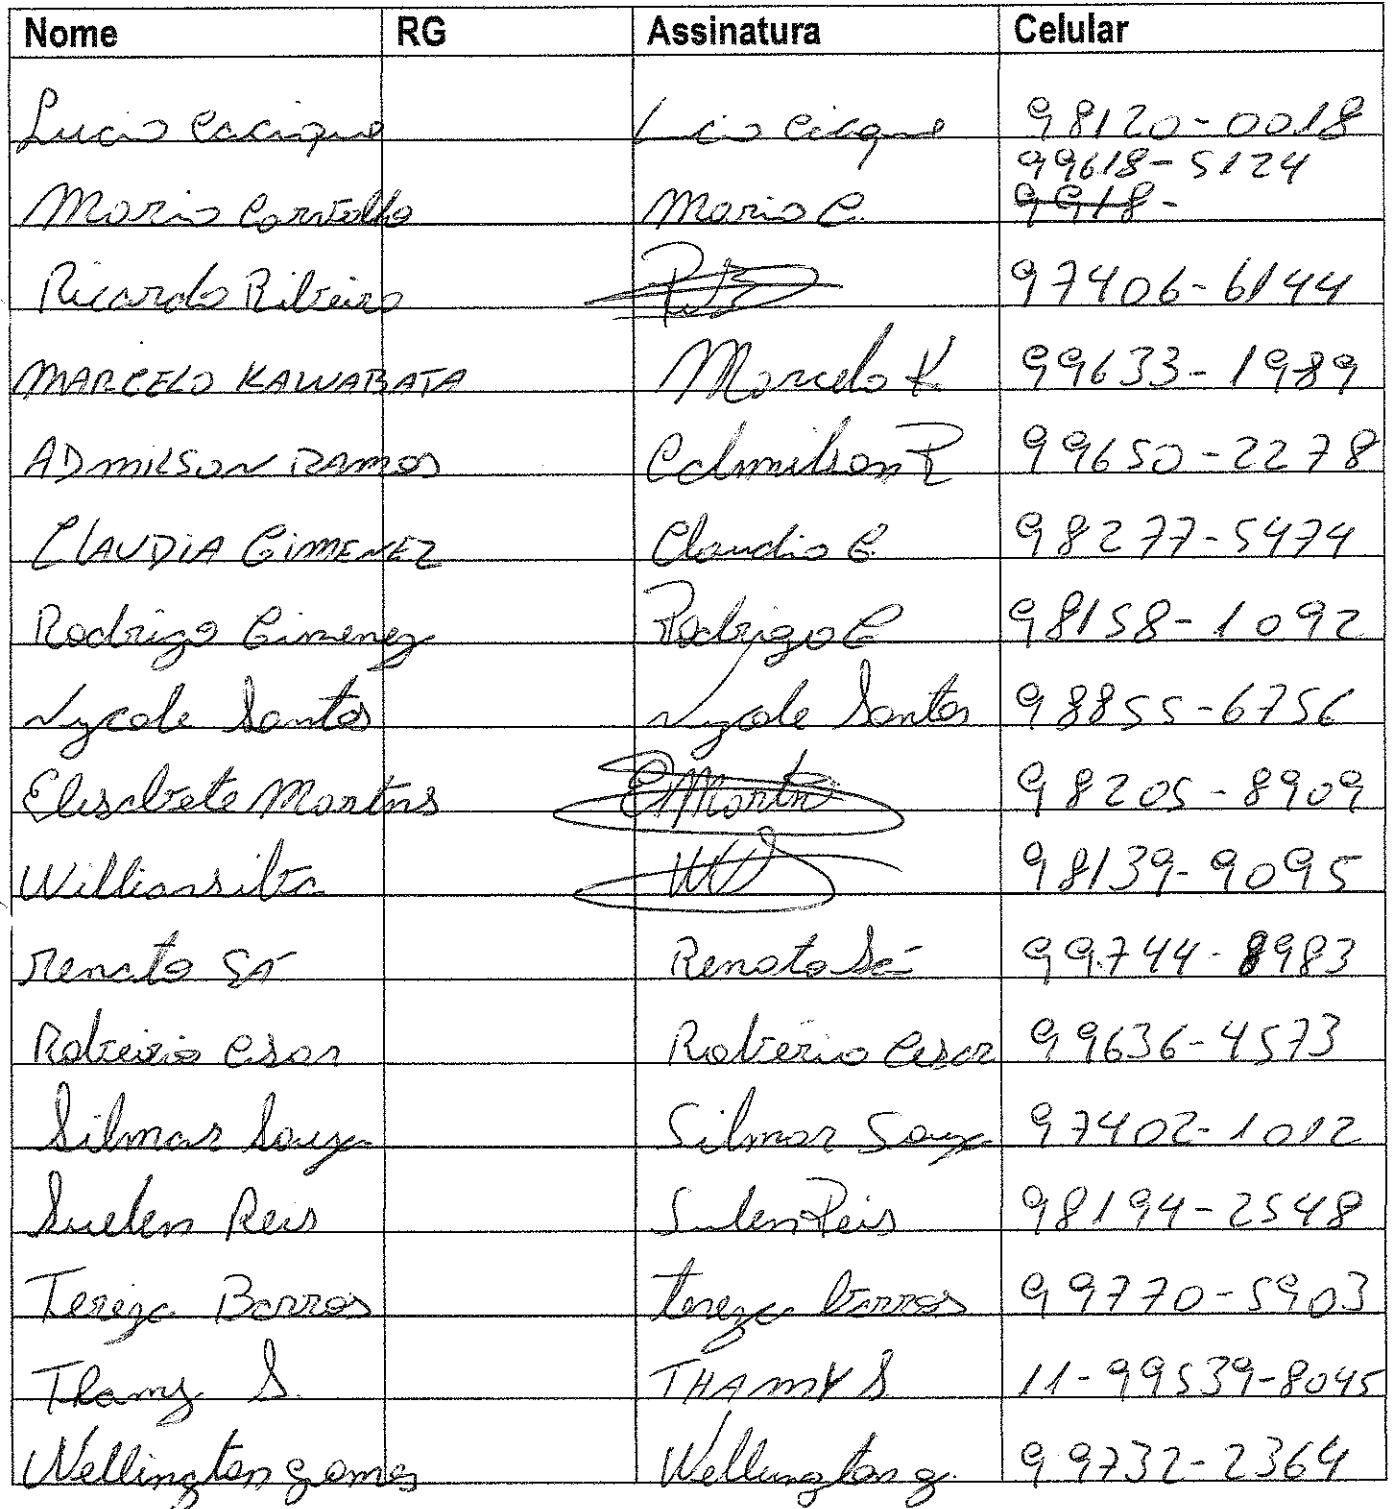 Nome RG Assinatura Celular
Lucio Cacique Lucio Cacique 98120-0018
99618-5124
Mario Carvalho Mario C. 9918-
Ricardo Ribeiro 97406-6144
MARCELO KAWABATA Marcelo K 99633-1989
ADMILSON RAMOS Admilson R 99650-2278
CLAUDIA GIMENEZ Claudia G. 98277-5474
Rodrigo Gimenez Rodrigo G 98158-1092
Nycole Santos Nycole Santos 98855-6756
Elisabete Martins E Martin 98205-8909
Willian silva WS 98139-9095
Renato Sá Renato Sá 99744-8983
Robério Cesar Robério Cesar 99636-4573
Silmar Souza Silmar Souza 97402-1012
Suelen Reis Suelen Reis 98194-2548
Tereza Barros tereza barros 99770-5903
Thamy S. THAMY S 11-99539-8045
Wellington gomes Wellington g. 99732-2364